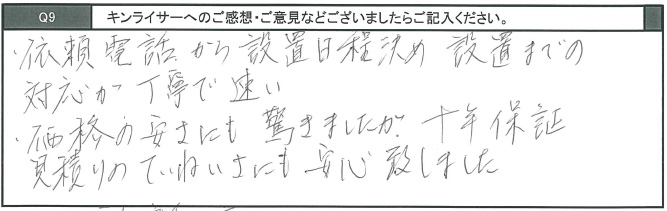 Q9 キンライサーへのご感想・ご意見などございましたらご記入ください。
・依頼電話から設置日程決め 設置までの
対応が丁寧で速い
・価格の安さにも驚きましたが、十年保証
見積りのていねいさにも安心致しました